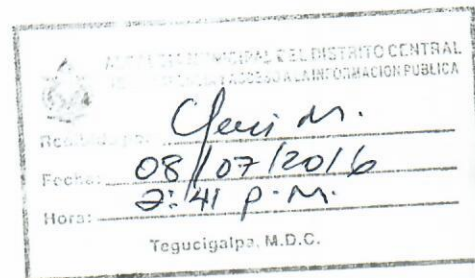 ALCALDIA MUNICIPAL DEL DISTRITO CENTRAL
ACCESO A LA INFORMACION PUBLICA
Recibido por:
08/07/2016
Fecha:
2:41 P.M.
Hora:
Tegucigalpa, M.D.C.